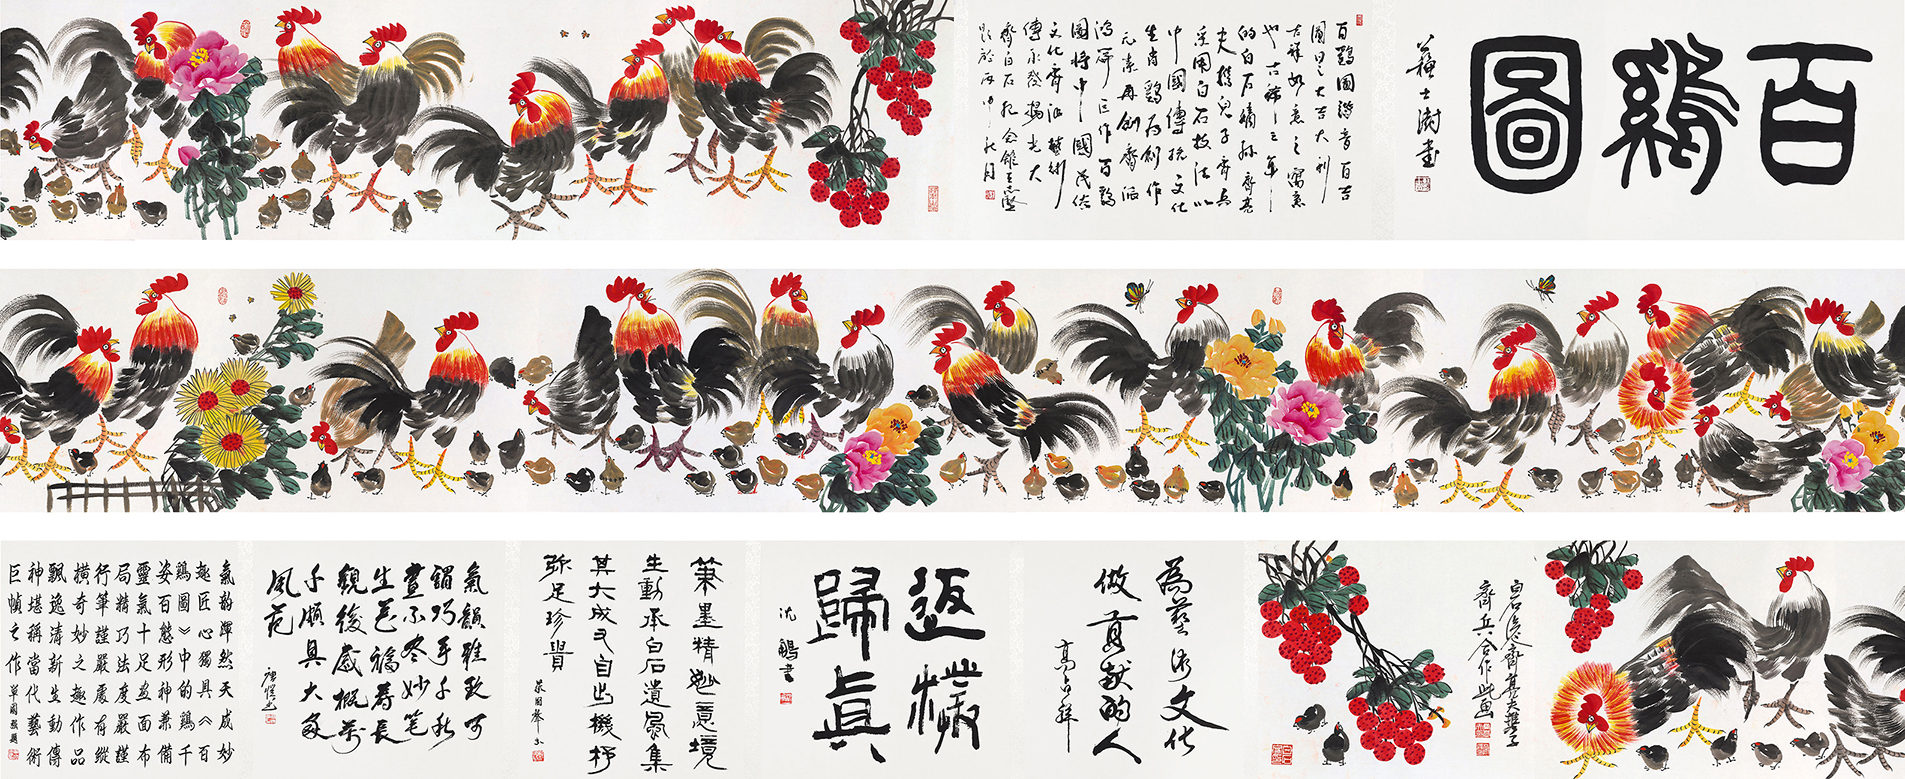 百鷄圖
蘇士澍書
百鷄圖谐音百吉
圖曰之大吉大利
吉祥如意之寓意
也古稀之年
的白石嫡孫齊
夫携兒子齊兵
采用白石技法以
中國傳統文化
生肖鷄為創作
元素再創齊派
鸿篇巨作百鷄
圖將中國民俗
文化齊派藝術
傳承發揚光大
齊白石纪念館王志堅
题於丙申秋月
白石後裔齊夫携子
齊兵合作此画
為藝術文化
做貢献的人
高占祥
返樸
歸真
沈鵬書
筆墨精妙意境
生動承白石遺風集
其大成又自出機杼
弥足珍貴
氣韻雅致可
謂巧手千秋
畫不尽妙筆
生花福壽長
觀後感慨萬
千願具大家
風范
氣韵渾然天成妙
趣匠心獨具《百
鷄圖》中的鷄千
姿百態形神兼備
靈氣十足畫面布
局精巧法度嚴謹
行筆謹嚴處有縱
橫奇妙之趣作品
飄逸清新生動傳
神堪稱當代藝術
巨幀之作 單國强題